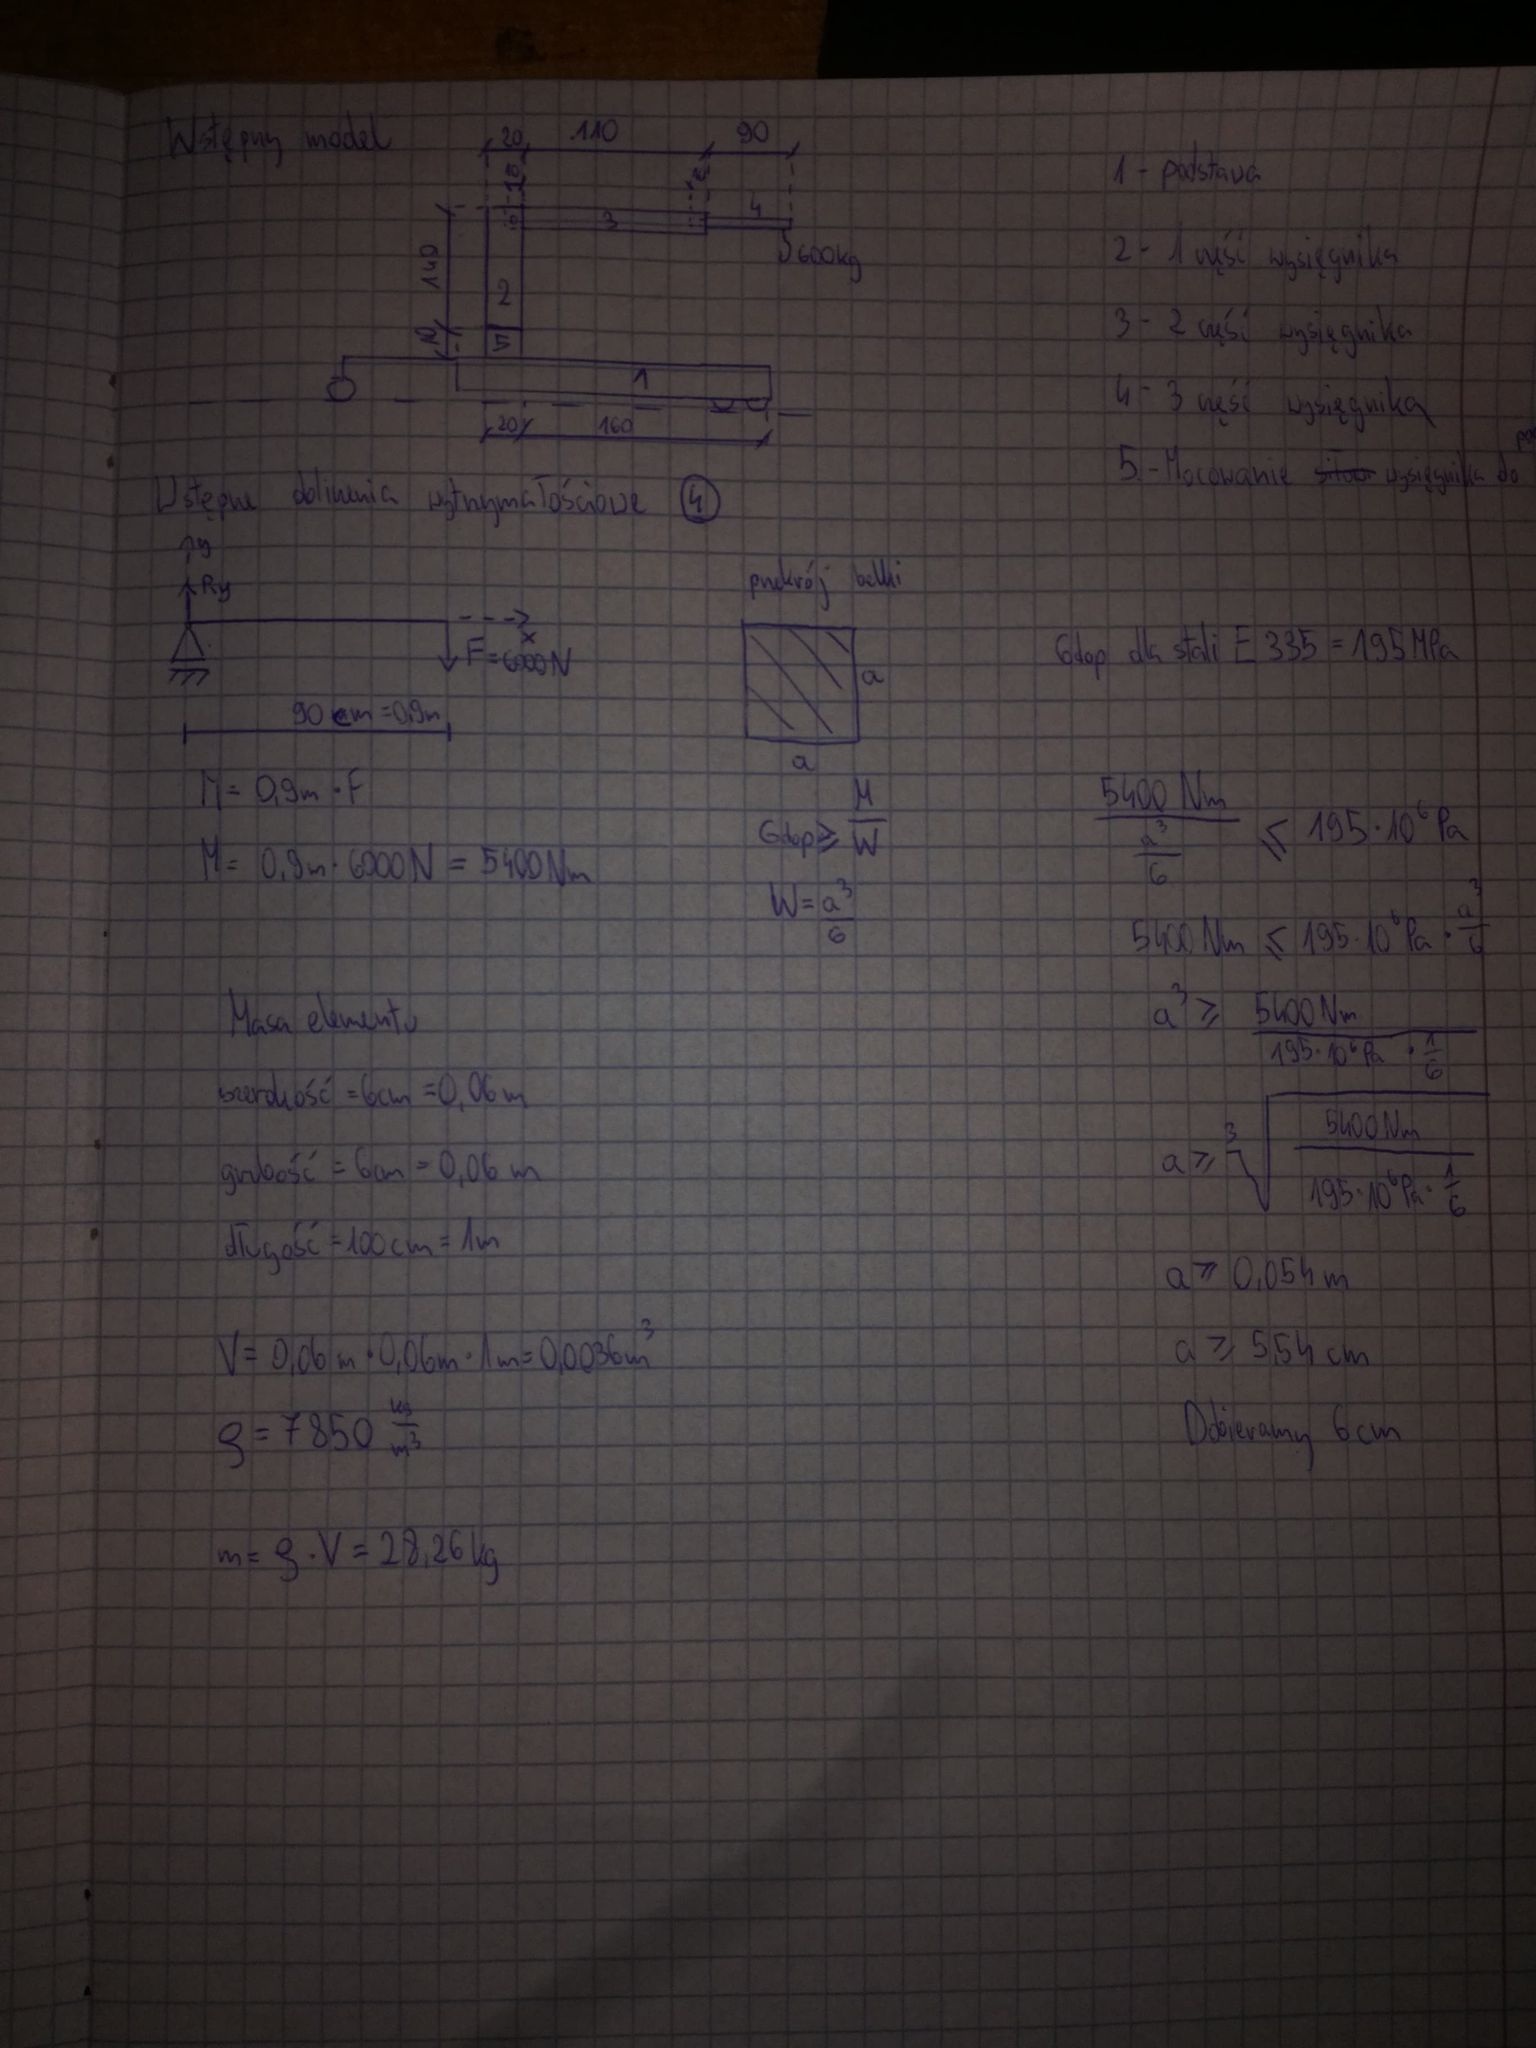 Wstępny model
20 110 90
10
140
20
3
4
600kg
2
5
1
20 160
1 - podstawa
2 - 1 część wysięgnika
3 - 2 część wysięgnika
4 - 3 część wysięgnika
5 - Mocowanie wysięgnika do
Wstępne obliczenia wytrzymałościowe 4
y
Ry
x
F = 6000N
90 cm = 0,9m
M = 0,9m · F
M = 0,9m · 6000N = 5400Nm
przekrój belki
a
a
σdop ≥ M/W
W = a³/6
σdop dla stali E 335 = 195 MPa
5400 Nm / (a³/6) ≤ 195·10⁶ Pa
5400 Nm ≤ 195·10⁶ Pa · a³/6
a³ ≥ 5400 Nm / (195·10⁶ Pa · 1/6)
a ≥ ³√(5400 Nm / (195·10⁶ Pa · 1/6))
a ≥ 0,054 m
a ≥ 5,54 cm
Dobieramy 6 cm
Masa elementu
szerokość = 6cm = 0,06 m
grubość = 6cm = 0,06 m
długość = 100 cm = 1m
V = 0,06 m · 0,06m · 1m = 0,0036m³
ρ = 7850 kg/m³
m = ρ · V = 28,26 kg